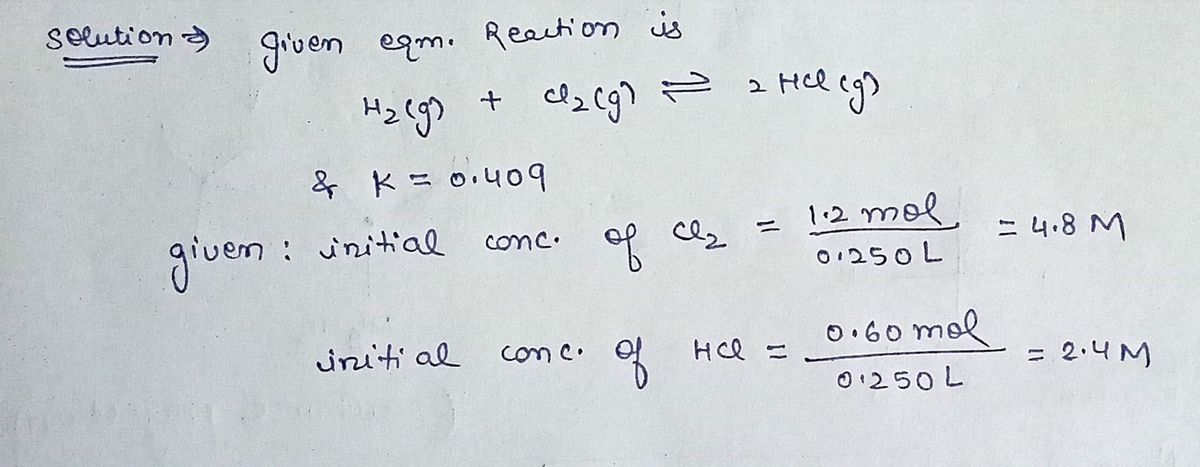 Solution ⇒ given eqm. Reaction is
H₂(g) + Cl₂(g) ⇌ 2 HCl (g)
& K = 0.409
given : initial conc. of Cl₂ = 1.2 mol / 0.250 L = 4.8 M
initial conc. of HCl = 0.60 mol / 0.250 L = 2.4 M